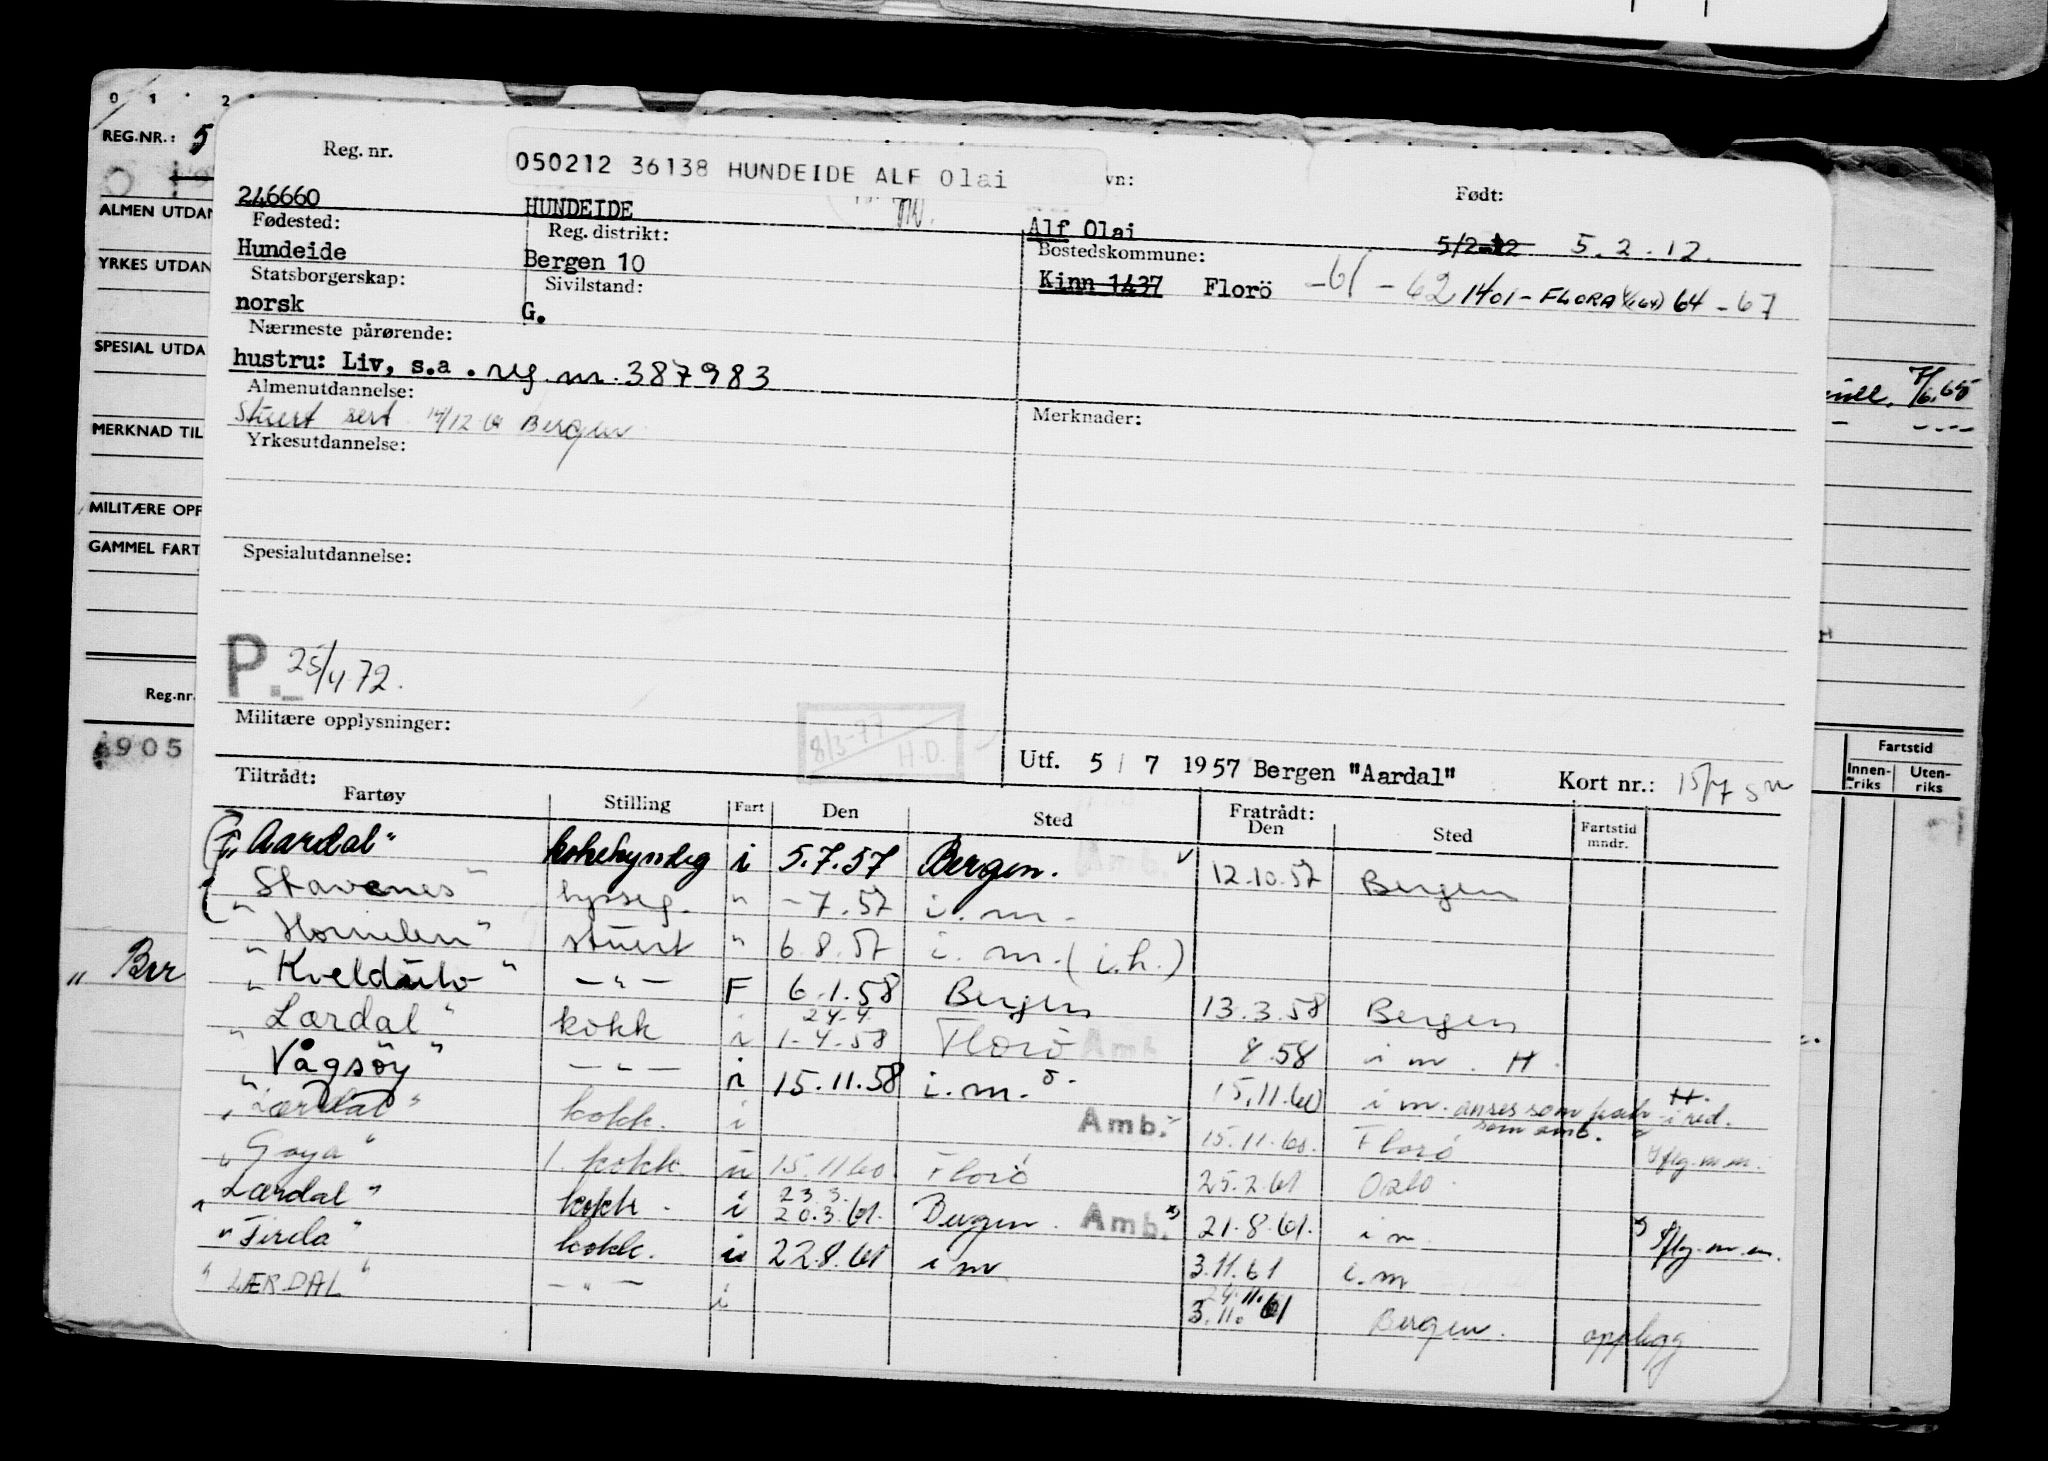 0 1 2
REG.NR.: 5
ALMEN UTDAN
YRKES UTDAN
SPESIAL UTDA
MERKNAD TIL
MILITÆRE OPP
GAMMEL FART
Reg.nr.
905
" Brr
Reg. nr.
050212 36138 HUNDEIDE ALF Olai
vn:
Født:
246660 HUNDEIDE Alf Olai 5/2-12 5.2.12.
Fødested: Reg. distrikt: Bostedskommune:
Hundeide Bergen 10 Kinn 1437 Florö -61 - 62 1401-FLORA 64 - 67
Statsborgerskap: Sivilstand:
norsk G.
Nærmeste pårørende:
hustru: Liv, s.a. reg. nr. 387983
Almenutdannelse: Merknader:
Stuert sert. 14/12 Bergen
Yrkesutdannelse:
Spesialutdannelse:
P. 25/4 72.
Militære opplysninger:
8/3-77 H.O.
Utf. 5/7 1957 Bergen "Aardal" Kort nr.: 15/7 5
Fartstid
Innen-riks Uten-riks
Tiltrådt:
Fartøy Stilling Fart Den Sted Fratrådt: Den Sted Fartstid mndr.
"Aardal" kokekyndig i 5.7.57 Bergen. Amb. 12.10.57 Bergen
"Stavenes" bysseg. " -7.57 i.m.
"Hornelen" stuert " 6.8.57 i.m. (i.h.)
"Kveldulv" -"- F 6.1.58 Bergen 13.3.58 Bergen
"Lærdal" kokk i 24.4 1.4.58 Florö Amb 8.58 i m. H.
"Vågsöy" -"- i 15.11.58 i.m. 15.11.60 i m. anses som som amb. H. i red.
"Lærdal" kokk. i Amb. 15.11.60. Florö iflg. m.m.
"Goya" 1. kokk. u 15.11.60. Florö 25.2.61 Oslo.
"Lærdal" kokk. i 23.3. 20.3.61. Bergen. Amb. 21.8.61. i m. iflg. m.m.
"Firda" kokk. u 22.8.61 i m 3.11.61 i.m
"LÆRDAL" -"- i 24.11. 3.11.61 Bergen. opplegg